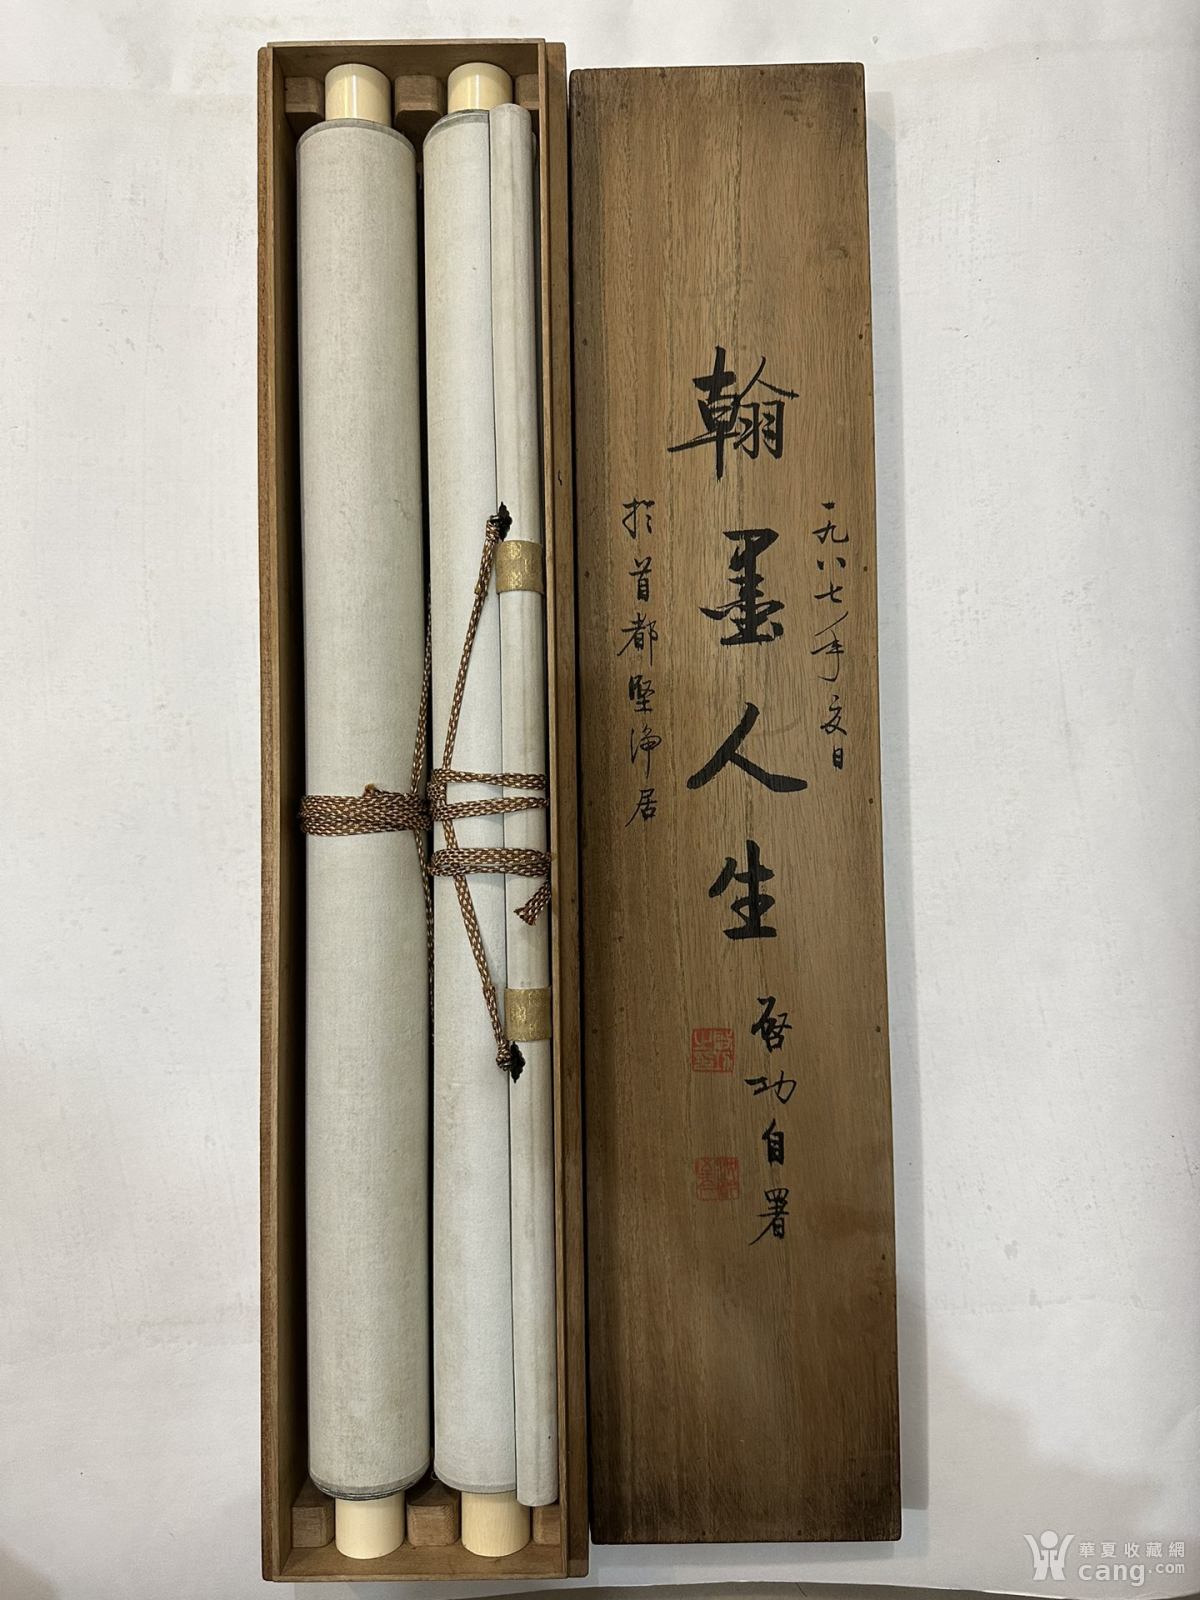 一九八七年夏日
翰墨人生
启功自署
於首都坚净居
華夏收藏網
cang.com